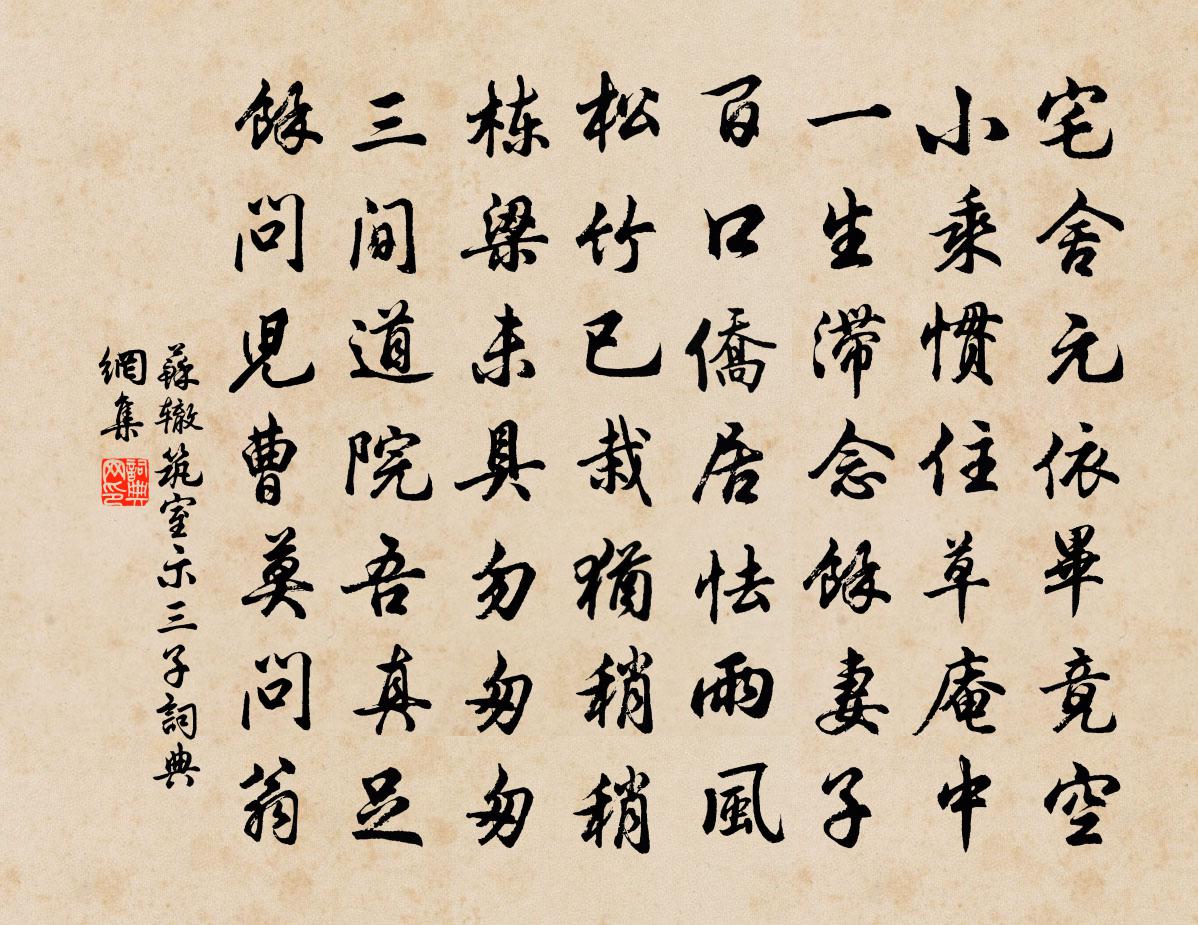 宅舍元依畢竟空
小乘慣住草庵中
一生滯念餘妻子
百口僑居怯雨風
松竹已栽猶稍稍
棟梁未具勿匆匆
三間道院吾真足
餘問兒曹莫問翁
蘇轍筑室示三子詞典
網集
詞典
网印